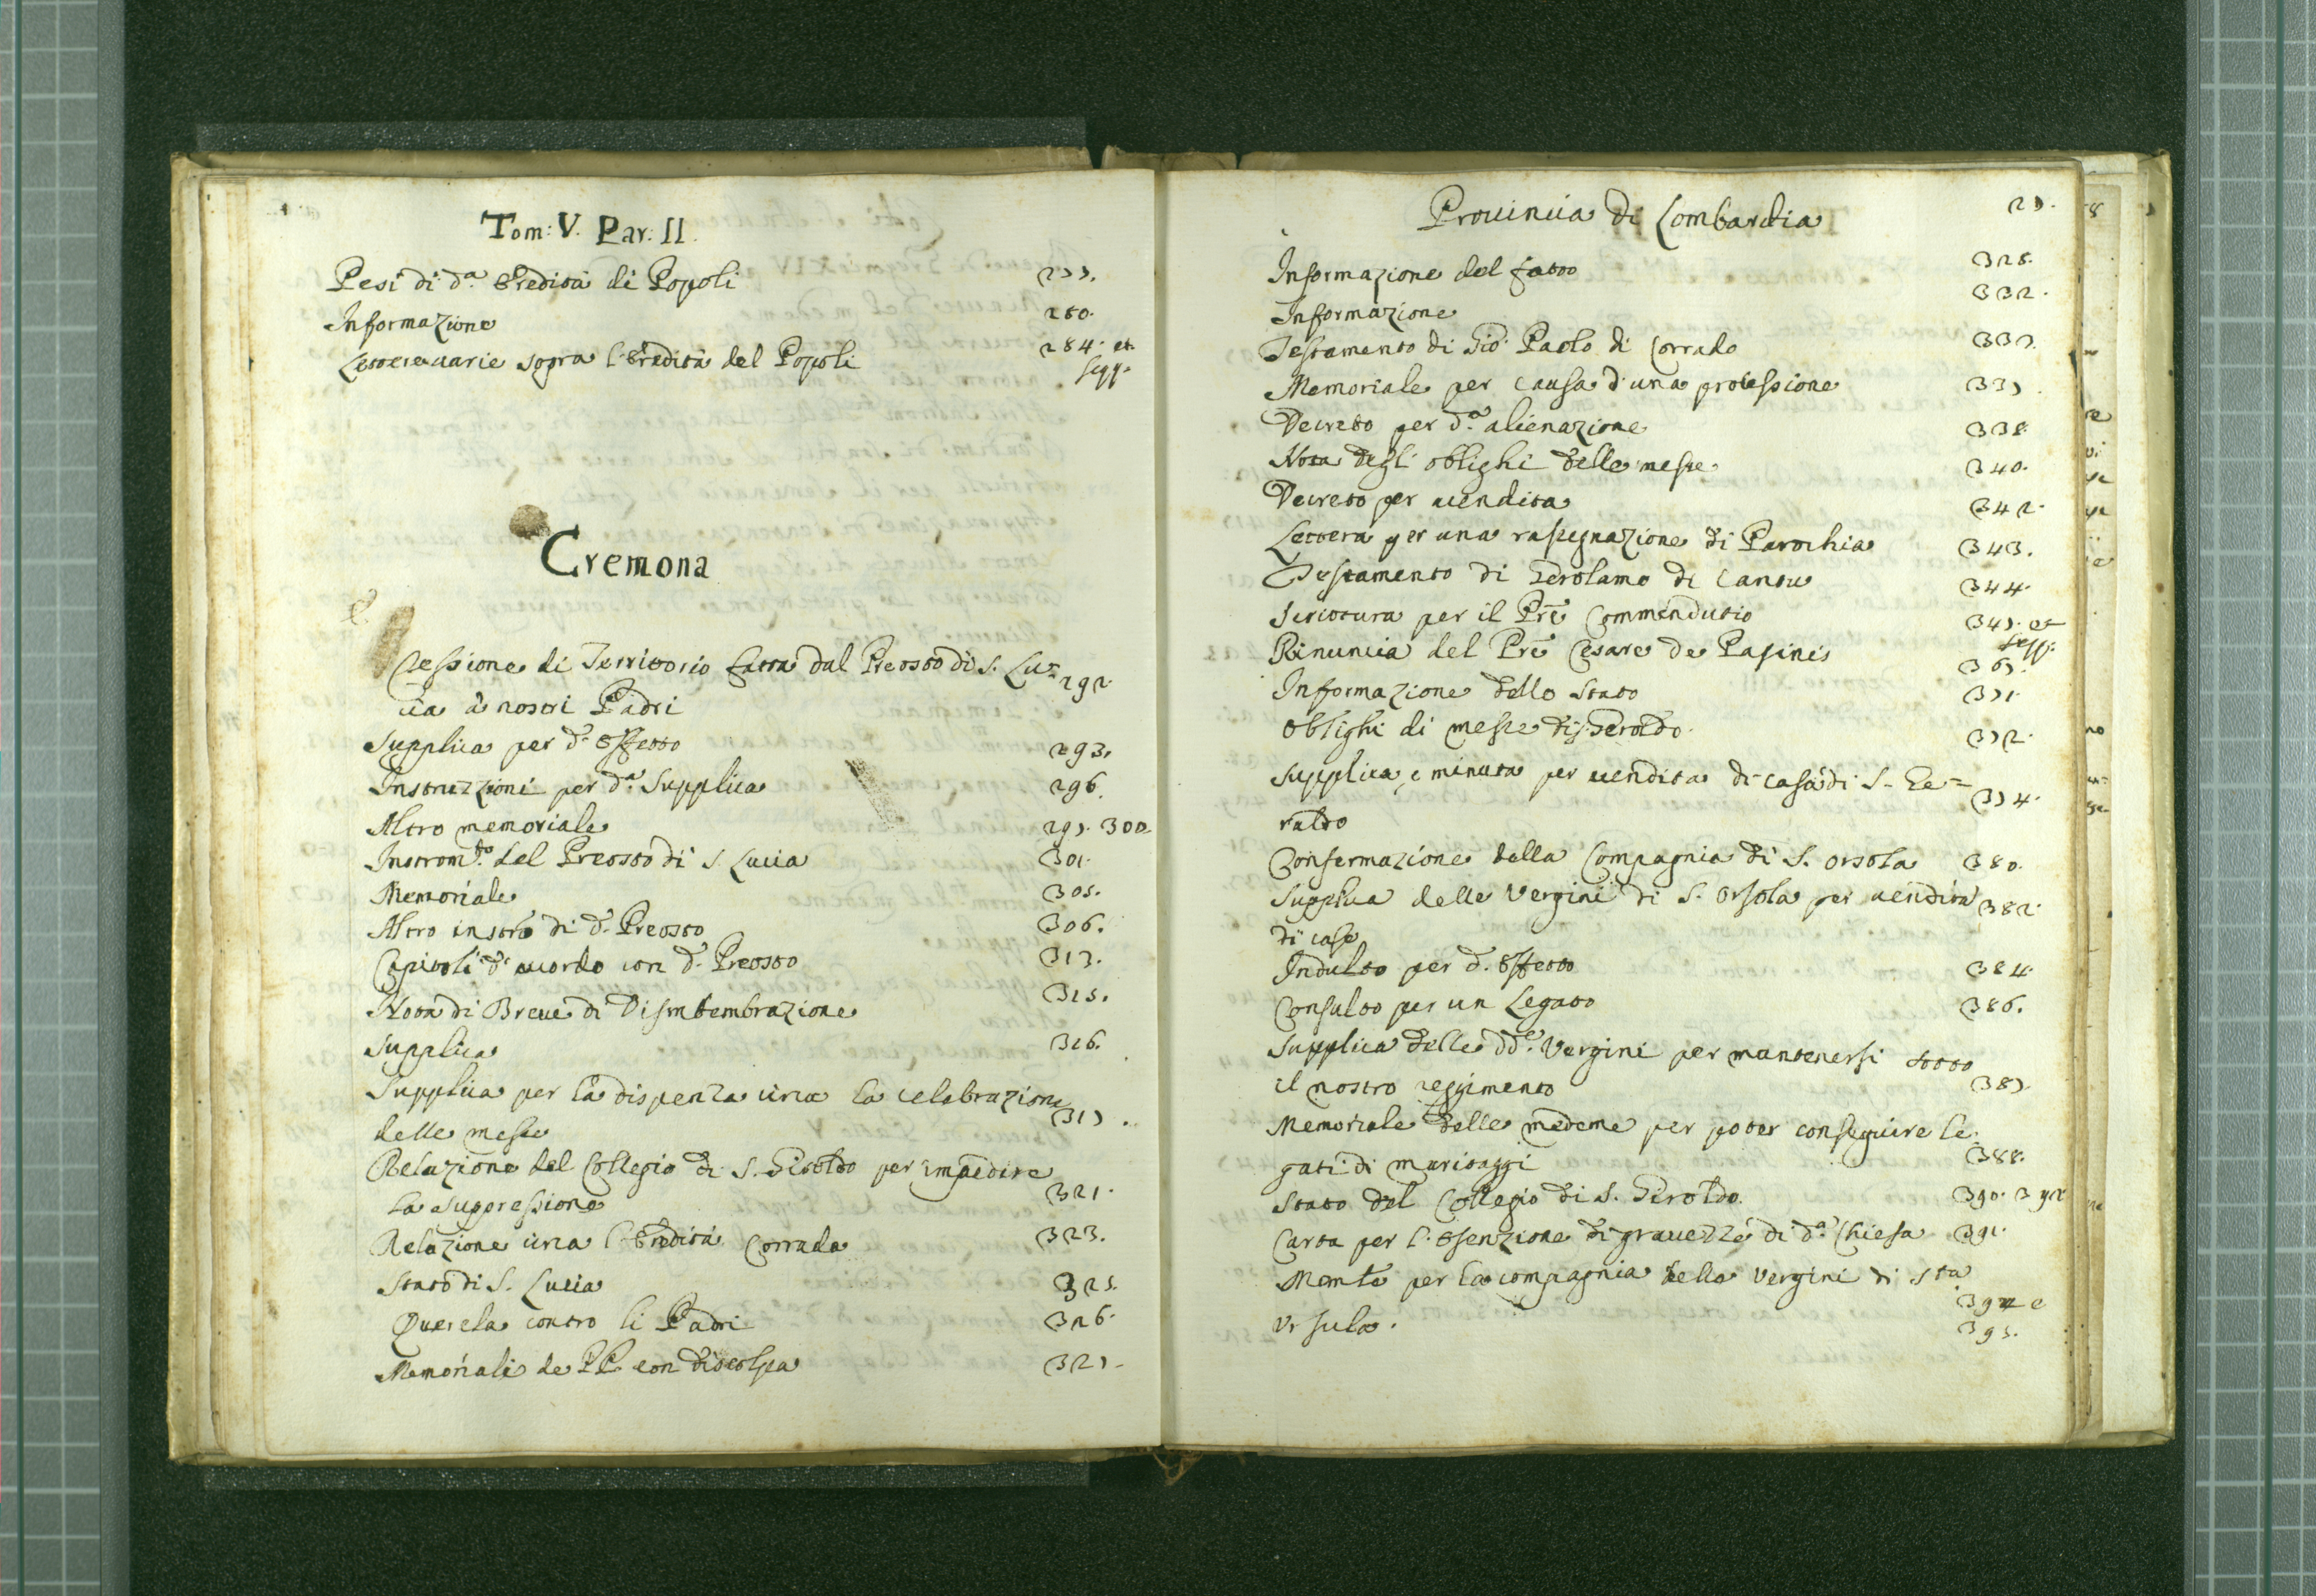 Tom: V. Par: II.
Pesi di d.ª Eredità di Popoli 277.
Informazione 280.
Lettere uarie sopra l'Eredità del Popoli 284. et
segg.
Cremona
Cessione di Territorio fatta dal Preosto di S. Lu=
cia à nostri Padri 292.
Supplica per d.º Effetto 293.
Instruzzioni per d.ª Supplica 296.
Altro memoriale 297. 300
Instrom.to del Preosto di S. Lucia 301.
Memoriale 305.
Altro instrõ di d.º Preosto 306.
Capitoli d'acordo con d.º Preosto 313.
Nota di Breue di Dismembrazione 315.
Supplica 316.
Supplica per la dispenza circa la celebrazione
delle messe 317.
Relazione del Collegio di S. Giroldo per impedire
la suppressione 321.
Relazione circa l'Eredità Corrada 323.
Stato di S. Lucia 325.
Querela contro li Padri 326.
Memoriali de PP. con discolpa 327.
Prouincia di Lombardia 27.
Informazione del fatto 328.
Informazione 332.
Testamento di Gio: Paolo di Corrado 333.
Memoriale per causa d'una processione 337.
Decreto per d.ª alienazione 338.
Nota degli oblighi delle messe 340.
Decreto per uendita 342.
Lettera per una rassegnazione di Parochia 343.
Testamento di Gerolamo di Cantu 344.
Scrittura per il Prē Commendutio 347. et
segg.
Rinuncia del Prē Cesare de Pasinis 367.
Informazione dello Stato 371.
Oblighi di messe di S. Geroldo. 372.
Supplica, e minuta per uendita di casa di S. Ge=
raldo 374.
Confermazione della Compagnia di S. Orsola 380.
Supplica delle Vergini di S. Orsola per uendita 382.
di case
Indulto per d.º Effetto 384.
Consulto per un Legato 386.
Supplica delle dd.e Vergini per mantenersi sotto
il nostro reggimento 387.
Memoriale delle medeme per poter conseguire le=
gati di maritaggi 388.
Stato del Collegio di S. Giroldo. 390. 392
Carta per l'Esenzione di grauezze di d.ª Chiesa 391.
Memle per la compagnia delle Vergini di Sta
Vrsula. 394 e
395.